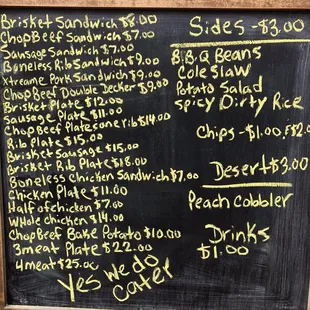 Brisket Sandwich $8.00
Chop Beef Sandwich $7.00
Sausage Sandwich $7.00
Boneless Rib Sandwich $9.00
Xtreame Pork Sandwich $9.00
Chop Beef Double Decker $9.00
Brisket Plate $12.00
Sausage Plate $11.00
Chop Beef Plate some rib $14.00
Rib Plate $15.00
Brisket Sausage $15.00
Brisket Rib Plate $18.00
Boneless Chicken Sandwich $7.00
Chicken Plate $11.00
Half of chicken $7.00
Whole Chicken $14.00
Chop Beef Bake Potato $10.00
3 meat Plate $22.00
4 meat $25.00
Yes we do
cater
Sides - $3.00
B.B.Q Beans
Coleslaw
Potato Salad
Spicy Dirty Rice
Chips - $1.00,
Desert $3.00
Peach cobbler
Drinks
$1.00